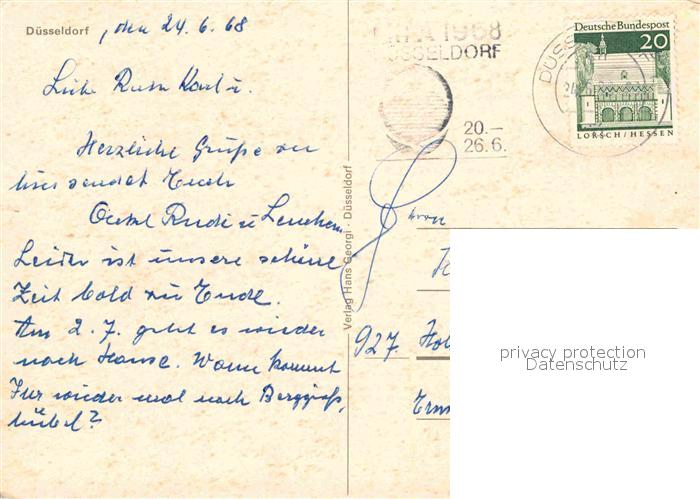 Düsseldorf, den 24.6.68
Herzliche Grüße von
hier sendet Euch
Onkel Rudi u Lenchen.
Leider ist unsere schöne
Zeit bald zu Ende.
Am 2.7. geht es wieder
nach Hause. Wann kommt
Ihr wieder mal nach Berggieß,
hübel?
Verlag Hans Georgi · Düsseldorf
1968
DÜSSELDORF
20.–
26.6.
DÜSS
Deutsche Bundespost
20
LORSCH/HESSEN
927.
privacy protection
Datenschutz